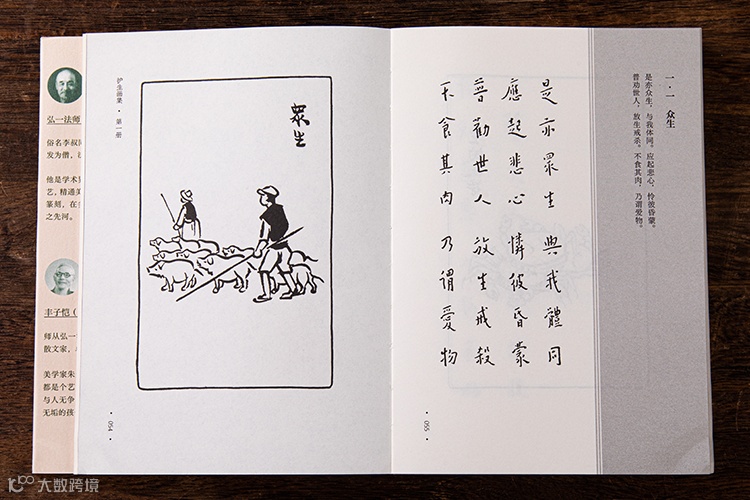 弘一法师
俗名李叔
发为僧，
他是学术
艺，精通
篆刻，在
之先河。
丰子恺（
师从弘一
散文家，
美学家朱
都是个艺
与人无争
无垢的孩
护生画集·第一册
眾生
·054·
一·一 众生
是亦众生，与我体同。应起悲心，怜彼昏蒙。
普劝世人，放生戒杀。不食其肉，乃谓爱物。
是亦眾生與我體同
應起悲心憐彼昏蒙
普勸世人放生戒殺
不食其肉乃謂愛物
·055·
大数跨境